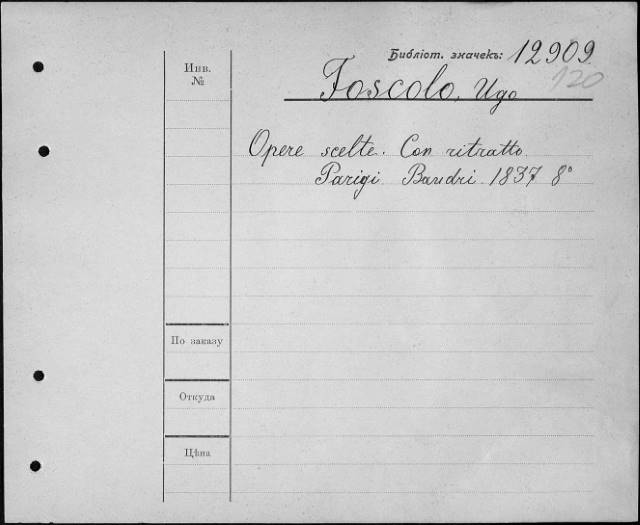 Библіот. значекъ: 12909.
120
Инв.
№
Foscolo, Ugo
Opere scelte. Con ritratto.
Parigi Baudri. 1837 8°
По заказу
Откуда
Цѣна